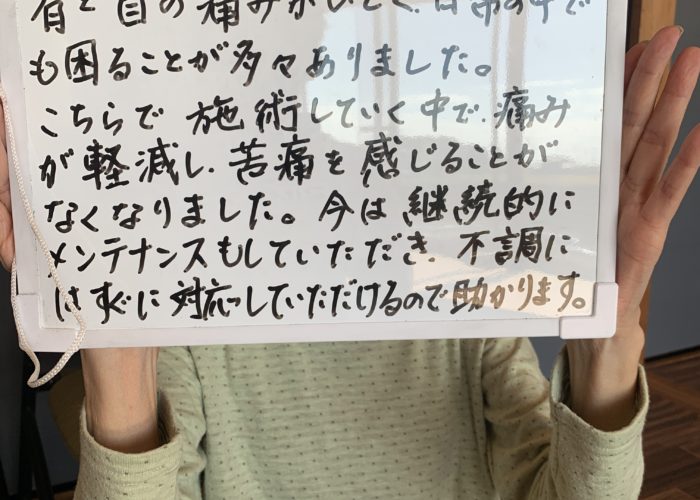 肩と首の痛みがひどく、日常の中で
も困ることが多々ありました。
こちらで施術していく中で、痛み
が軽減し、苦痛を感じることが
なくなりました。今は継続的に
メンテナンスもしていただき、不調に
はすぐに対応していただけるので助かります。